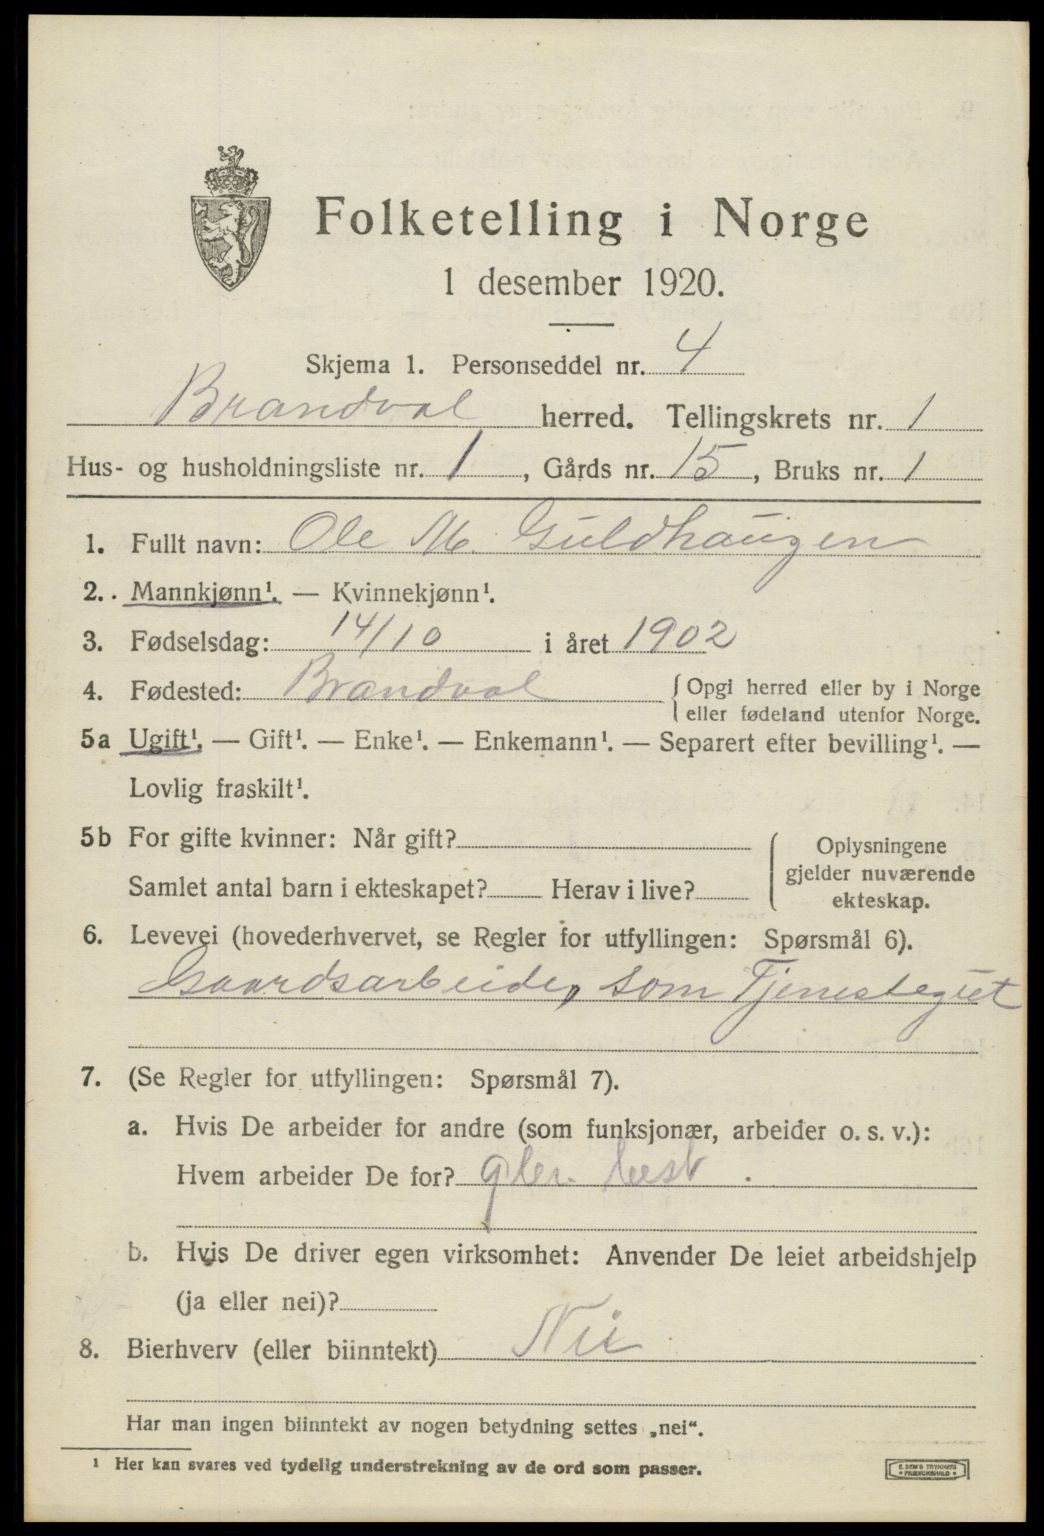 Folketelling i Norge
1 desember 1920.
Skjema 1. Personseddel nr. 4
Brandval herred. Tellingskrets nr. 1
Hus- og husholdningsliste nr. 1, Gårds nr. 15, Bruks nr. 1
1. Fullt navn: Ole M. Guldhaugen
2. Mannkjønn¹. — Kvinnekjønn¹.
3. Fødselsdag: 14/10 i året 1902
4. Fødested: Brandval { Opgi herred eller by i Norge
eller fødeland utenfor Norge.
5a Ugift¹. — Gift¹. — Enke¹. — Enkemann¹. — Separert efter bevilling¹. —
Lovlig fraskilt¹.
5b For gifte kvinner: Når gift?
Samlet antal barn i ekteskapet? Herav i live?
Oplysningene
gjelder nuværende
ekteskap.
6. Levevei (hovederhvervet, se Regler for utfyllingen: Spørsmål 6).
Gaardsarbeider som Tjenestegut
7. (Se Regler for utfyllingen: Spørsmål 7).
a. Hvis De arbeider for andre (som funksjonær, arbeider o. s. v.):
Hvem arbeider De for?
b. Hvis De driver egen virksomhet: Anvender De leiet arbeidshjelp
(ja eller nei)?
8. Bierhverv (eller biinntekt) Nei
Har man ingen biinntekt av nogen betydning settes „nei“.
¹ Her kan svares ved tydelig understrekning av de ord som passer.